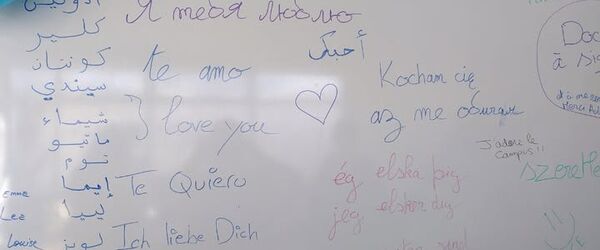 Я тебя люблю
كلير
كونتان
سيندي
شيماء
ماتيو
توم
إيما
ليبا
لويز
Emma
Lee
Louise
te amo
I love you
Te Quiero
Ich liebe Dich
أحبك
Kocham cię
аз ме обичам
ég elska þig
jeg elsker dig
J'adore le
campus!!
Doc
à sig